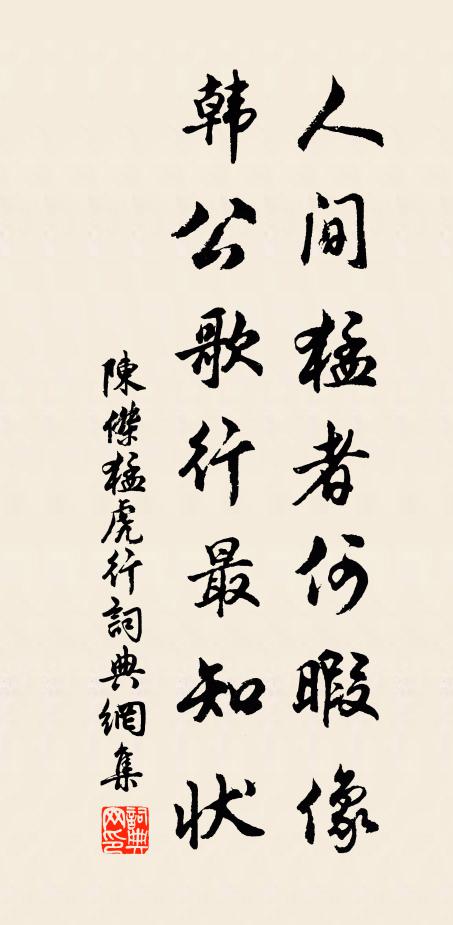 人间猛者何暇像
韩公歌行最知状
陳傑猛虎行詞典網集
詞典网印